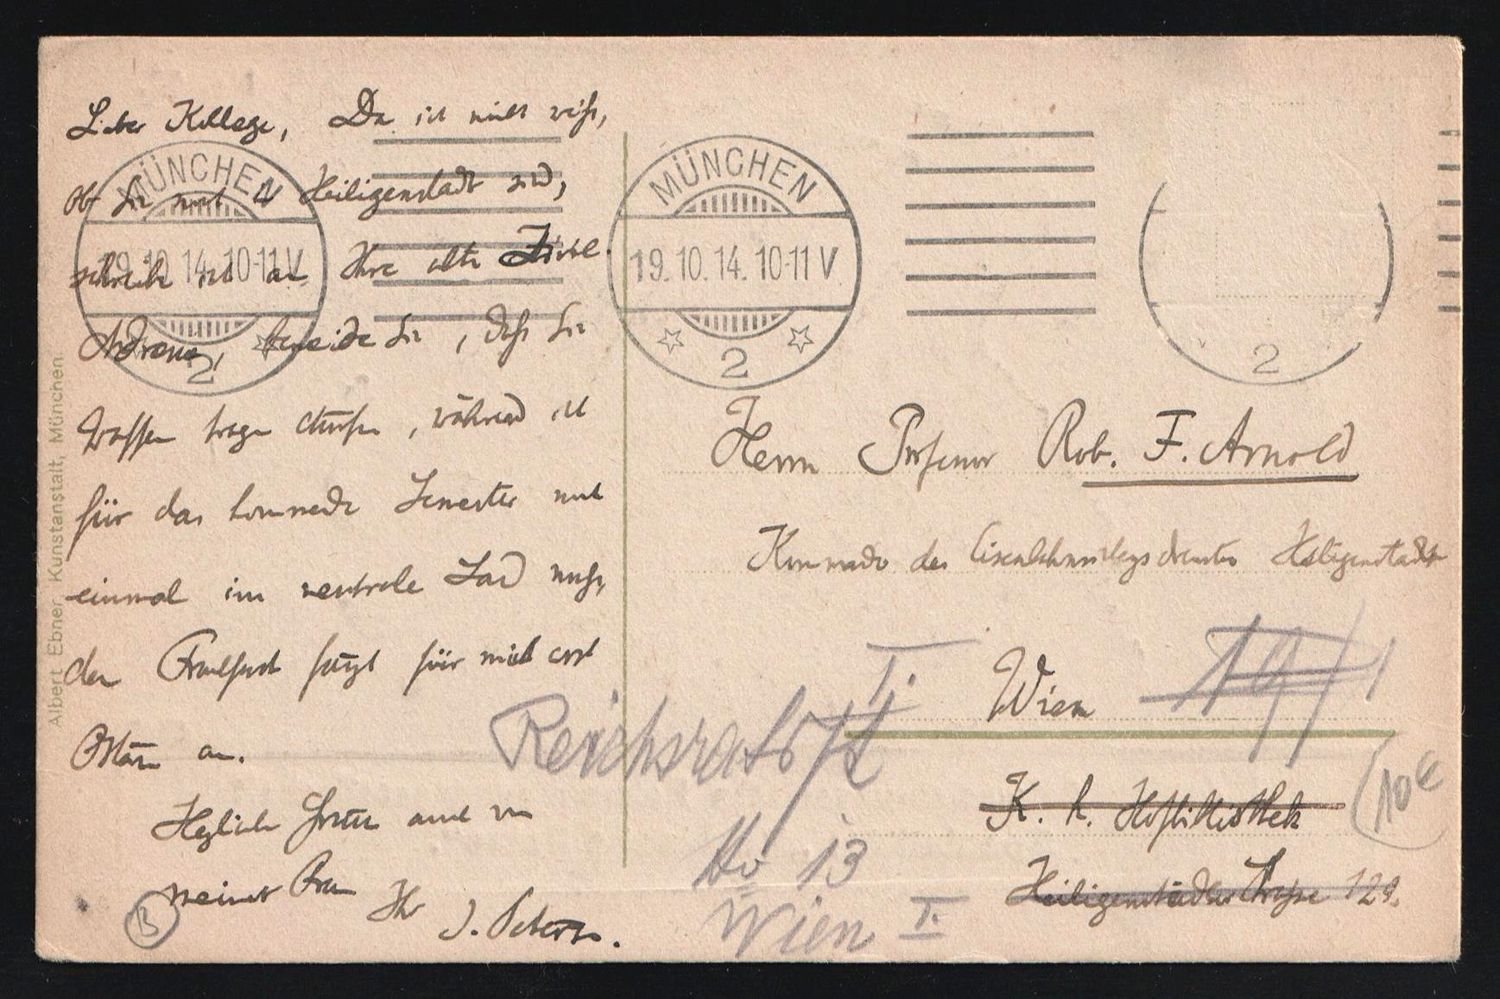 Lieber Kollege, Da ich nicht weiß,
ob Sie noch in Heiligenstadt sind,
schreibe ich an Ihre alte
beneide Sie, daß Sie
Waffen tragen dürfen, während ich
für das kommende Semester nicht
einmal im neutrale Land muß,
denn Frankfurt fängt für mich erst
Ostern an.
Herzliche Grüße auch von
meiner Frau
Ihr J. Petersen.
B
Albert Ebner, Kunstanstalt, München.
MÜNCHEN
19.10.14. 10-11 V
2
MÜNCHEN
19.10.14. 10-11 V
2
2
Herrn Professor Rob. F. Arnold
Kommando des Heiligenstadt
Wien
K. k. Hofbibliothek
Heiligenstädter Strasse 129.
I.
Reichsratsstr
No 13
Wien I.
10 €